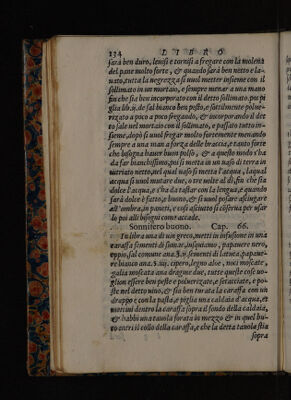 134 LIBRO
sarà ben duro, levisi e tornisi a fregare con la molena
del pane molto forte, & quando sarà ben netto e la-
vato, tutta la negrezza si vuol metter insieme con il
sollimato in un mortaio, e sempre menar a una mano
fin che sia ben incorporato con il detto sollimato. poi pi
glia lib.ii. de sal bianco ben pesto, e sottilmente polue-
rizato a poco a poco fregando, & incorporando il det
to sale nel mortaio con il sollimato, e passato tutto in-
sieme, dopò si vuol fregar molto fortemente menando
sempre a una man a forza delle braccia, e tanto forte
che bisogna haver buon polso, & a questo modo s'ha
da far bianchissimo, poi si metta in un vaso di terra in
vitriato netto, nel qual vaso si metta l'acqua, laqual
acqua si vuol mutare due, o tre volte al dì, fin che sia
dolce l'acqua, e s'ha da tastar con la lengua, e quando
sarà dolce è fatto, e buono, & si vuol posare asciugare
all'ombra, in paneti, e cosi asciutto si conserva per usar
lo poi alli bisogni come accade.
Sonnifero buono. Cap. 66.
In libra una di vin greco, metti in infusione in una
caraffa sementi di iusquiamo, papavero nero,
oppio, sal comune ana.ʒ.ii. sementi di latuca, papaue-
re bianco ana.ʒ.iii. cipero, legno aloe, noci moscate,
galia moscata ana dragme due, tutte queste cose vo-
glion essere ben peste e polverizate, e setacciate, e po-
ste nel detto vino, & sia ben turata la caraffa con un
drappo e con la pasta, e piglia una caldaia d'acqua, et
mettivi dentro la caraffa sopra il fondo della caldaia,
& habbi una tavola forata in mezzo & in quel bu-
co entri il collo della caraffa, e che la detta tavola stia
sopra